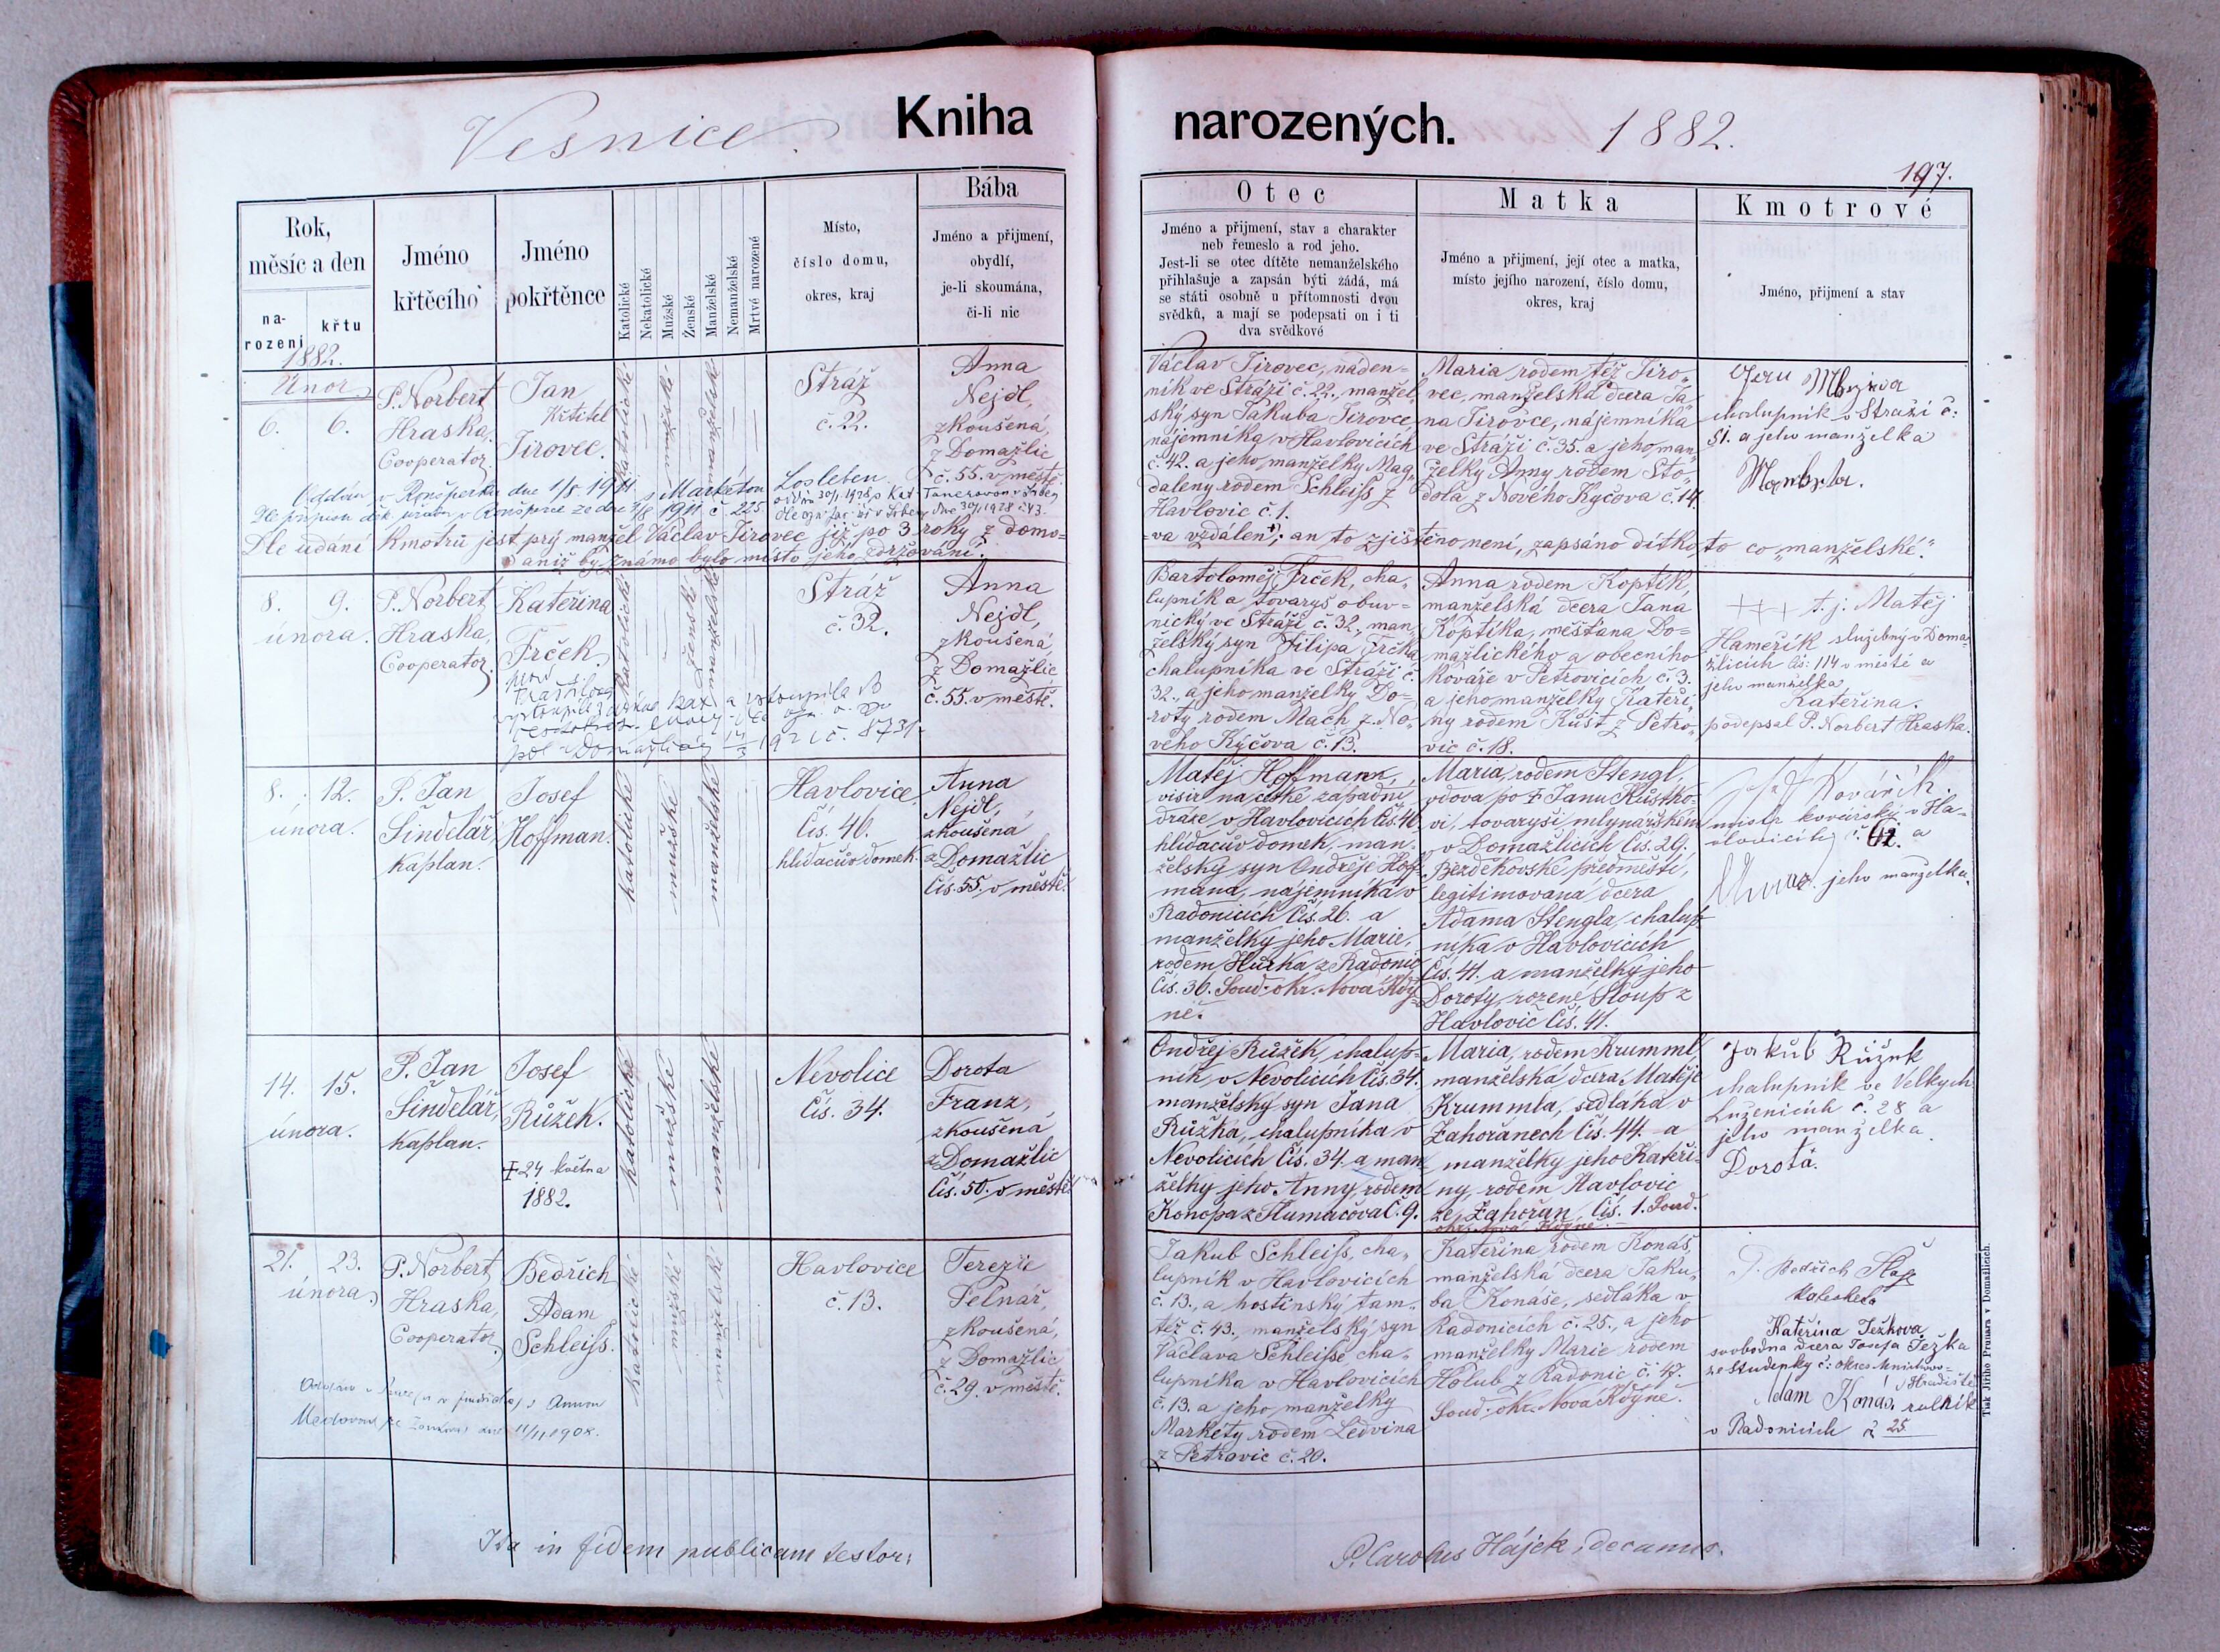 Vesnice.
Kniha
narozených.
1882.
197.
Rok,
měsíc a den
na-
rození
křtu
Jméno
křtěcího
Jméno
pokřtěnce
Katolické
Nekatolické
Mužské
Ženské
Manželské
Nemanželské
Mrtvé narozené
Místo,
číslo domu,
okres, kraj
Bába
Jméno a přijmení,
obydlí,
je-li skoumána,
či-li nic
Otec
Jméno a přijmení, stav a charakter
neb řemeslo a rod jeho.
Jest-li se otec dítěte nemanželského
přihlašuje a zapsán býti žádá, má
se státi osobně u přítomnosti dvou
svědků, a mají se podepsati on i ti
dva svědkové
Matka
Jméno a přijmení, její otec a matka,
místo jejího narození, číslo domu,
okres, kraj
Kmotrové
Jméno, přijmení a stav
1882.
Únor
6. 6.
P. Norbert
Hraska,
Cooperator.
Jan
Křtitel
Jirovec.
katolické
mužské
manželské
Stráž
č. 22.
Anna
Nejdl,
zkoušená,
z Domažlic
č. 55. v městě.
Václav Jirovec, náden=
ník ve Stráži č. 22., manžel
ský syn Jakuba Jirovce,
nájemníka v Havlovicích
č. 42. a jeho manželky Mag
daleny rodem Schleiß z
Havlovic č. 1.
Maria rodem též Jiro
vec, manželská dcera Ja
na Jirovce, nájemníka
ve Stráži č. 35. a jeho man
želky Anny rodem Sto
dola z Nového Kyčova č. 14.
chalupník v Straži č:
51. a jeho manželka
Oddán v Ronšperku dne 1/8 1911 s Markétou Losleben
ze dne 4/8 1911 č. 225
Dle udání kmotrů jest prý manžel Václav Jirovec již po 3 roky z domo=
=va vzdálen, an to zjištěno není, zapsáno dítko to co „manželské."
aniž by známo bylo místo jeho zdržování.
8. 9.
února.
P. Norbert
Hraska,
Cooperator.
Kateřina
Frček.
katolické
ženské
manželské
Stráž
č. 32.
Anna
Nejdl,
zkoušená,
z Domažlic
č. 55. v městě.
Bartoloměj Frček, cha
lupník a tovaryš obuv=
nický ve Stráži č. 32., man
želský syn Filipa Frčka
chalupníka ve Stráži č.
32., a jeho manželky Do=
roty rodem Mach z No
vého Kyčova č. 13.
Anna rodem Koptík,
manželská dcera Jana
Koptíka, měšťana Do=
mažlického a obecního
kováře v Petrovicích č. 3.
a jeho manželky Kateři
ny rodem Kůst z Petro
vic č. 18.
+++ t. j. Matěj
Hameřík služebný v Doma
žlicích čís: 114 v městě a
jeho manželka
Kateřina.
podepsal P. Norbert Hraska.
8. 12.
února.
P. Jan
Šindelář
kaplan.
Josef
Hoffman.
katolické
mužské
manželské
Havlovice
Čís. 46.
hlídačův domek.
Anna
Nejdl,
zkoušená
z Domažlic
čís. 55. v městě.
Matěj Hoffmann,
visír na české západní
dráze v Havlovicích čís. 46
hlídačův domek, man
želský syn Ondřeje Hoff
mana, nájemníka v
Radonicích čís. 26. a
manželky jeho Marie,
rodem Hůrka z Radonic
čís. 36. Soud. okr. Nová Kdy
ně.
Maria, rodem Stengl,
vdova po † Janu Kůstko
vi, tovaryši mlynářském
v Domažlicích čís. 29.
Bezděkovské předměstí,
legitimovaná dcera
Adama Stengla, chalup
níka v Havlovicích
čís. 41. a manželky jeho
Doroty, rozené Sloup z
Havlovic čís. 41.
Kovářík
mistr kovářský v Ha=
vlovicích č. 42. a
jeho manželka.
14. 15.
února.
P. Jan
Šindelář,
kaplan.
Josef
Růžek.
† 24 května
1882.
katolické
mužské
manželské
Nevolice
čís. 34.
Dorota
Franz,
zkoušená
z Domažlic
čís. 50. v městě
Ondřej Růžek, chalup=
ník v Nevolicích čís. 34.
manželský syn Jana
Růžka, chalupníka v
Nevolicích čís. 34. a man
želky jeho Anny, rodem
Konopa z Tlumačova č. 9.
Maria, rodem Krumml,
manželská dcera Matěje
Krummla, sedláka v
Zahořanech čís. 44. a
manželky jeho Kateři
ny, rodem Havlovic
ze Zahořan čís. 1. Soud.
okr. Nová Kdyně.
Jakub Růžek
chalupník ve Velkých
Luženicích č. 28 a
jeho manželka
Dorota.
21. 23.
února
P. Norbert
Hraska,
Cooperator.
Bedřich
Adam
Schleiß.
katolické
mužské
manželské
Havlovice
č. 13.
Terezie
Pelnář,
zkoušená,
z Domažlic
č. 29. v městě.
Jakub Schleiß, cha
lupník v Havlovicích
č. 13., a hostinský tam
též č. 43., manželský syn
Václava Schleiße cha
lupníka v Havlovicích
č. 13. a jeho manželky
Markéty rodem Ledvina
z Petrovic č. 20.
Kateřina rodem Konáš,
manželská dcera Jaku
ba Konáše, sedláka v
Radonicích č. 25., a jeho
manželky Marie rodem
Holub z Radonic č. 47.
Soud. okr. Nová Kdyně.
Bedřich
Kateřina Težkova
svobodna dcera Josefa Težka
ze Studenky č: okres Mnichovo=
Hradiště
Adam Konáš rolník
v Radonicích č 25
dne 11/11 1908.
Ita in fidem publicam testor:
P. Carolus Hájek, decanus.
Tisk Jiřího Prunara v Domažlicích.